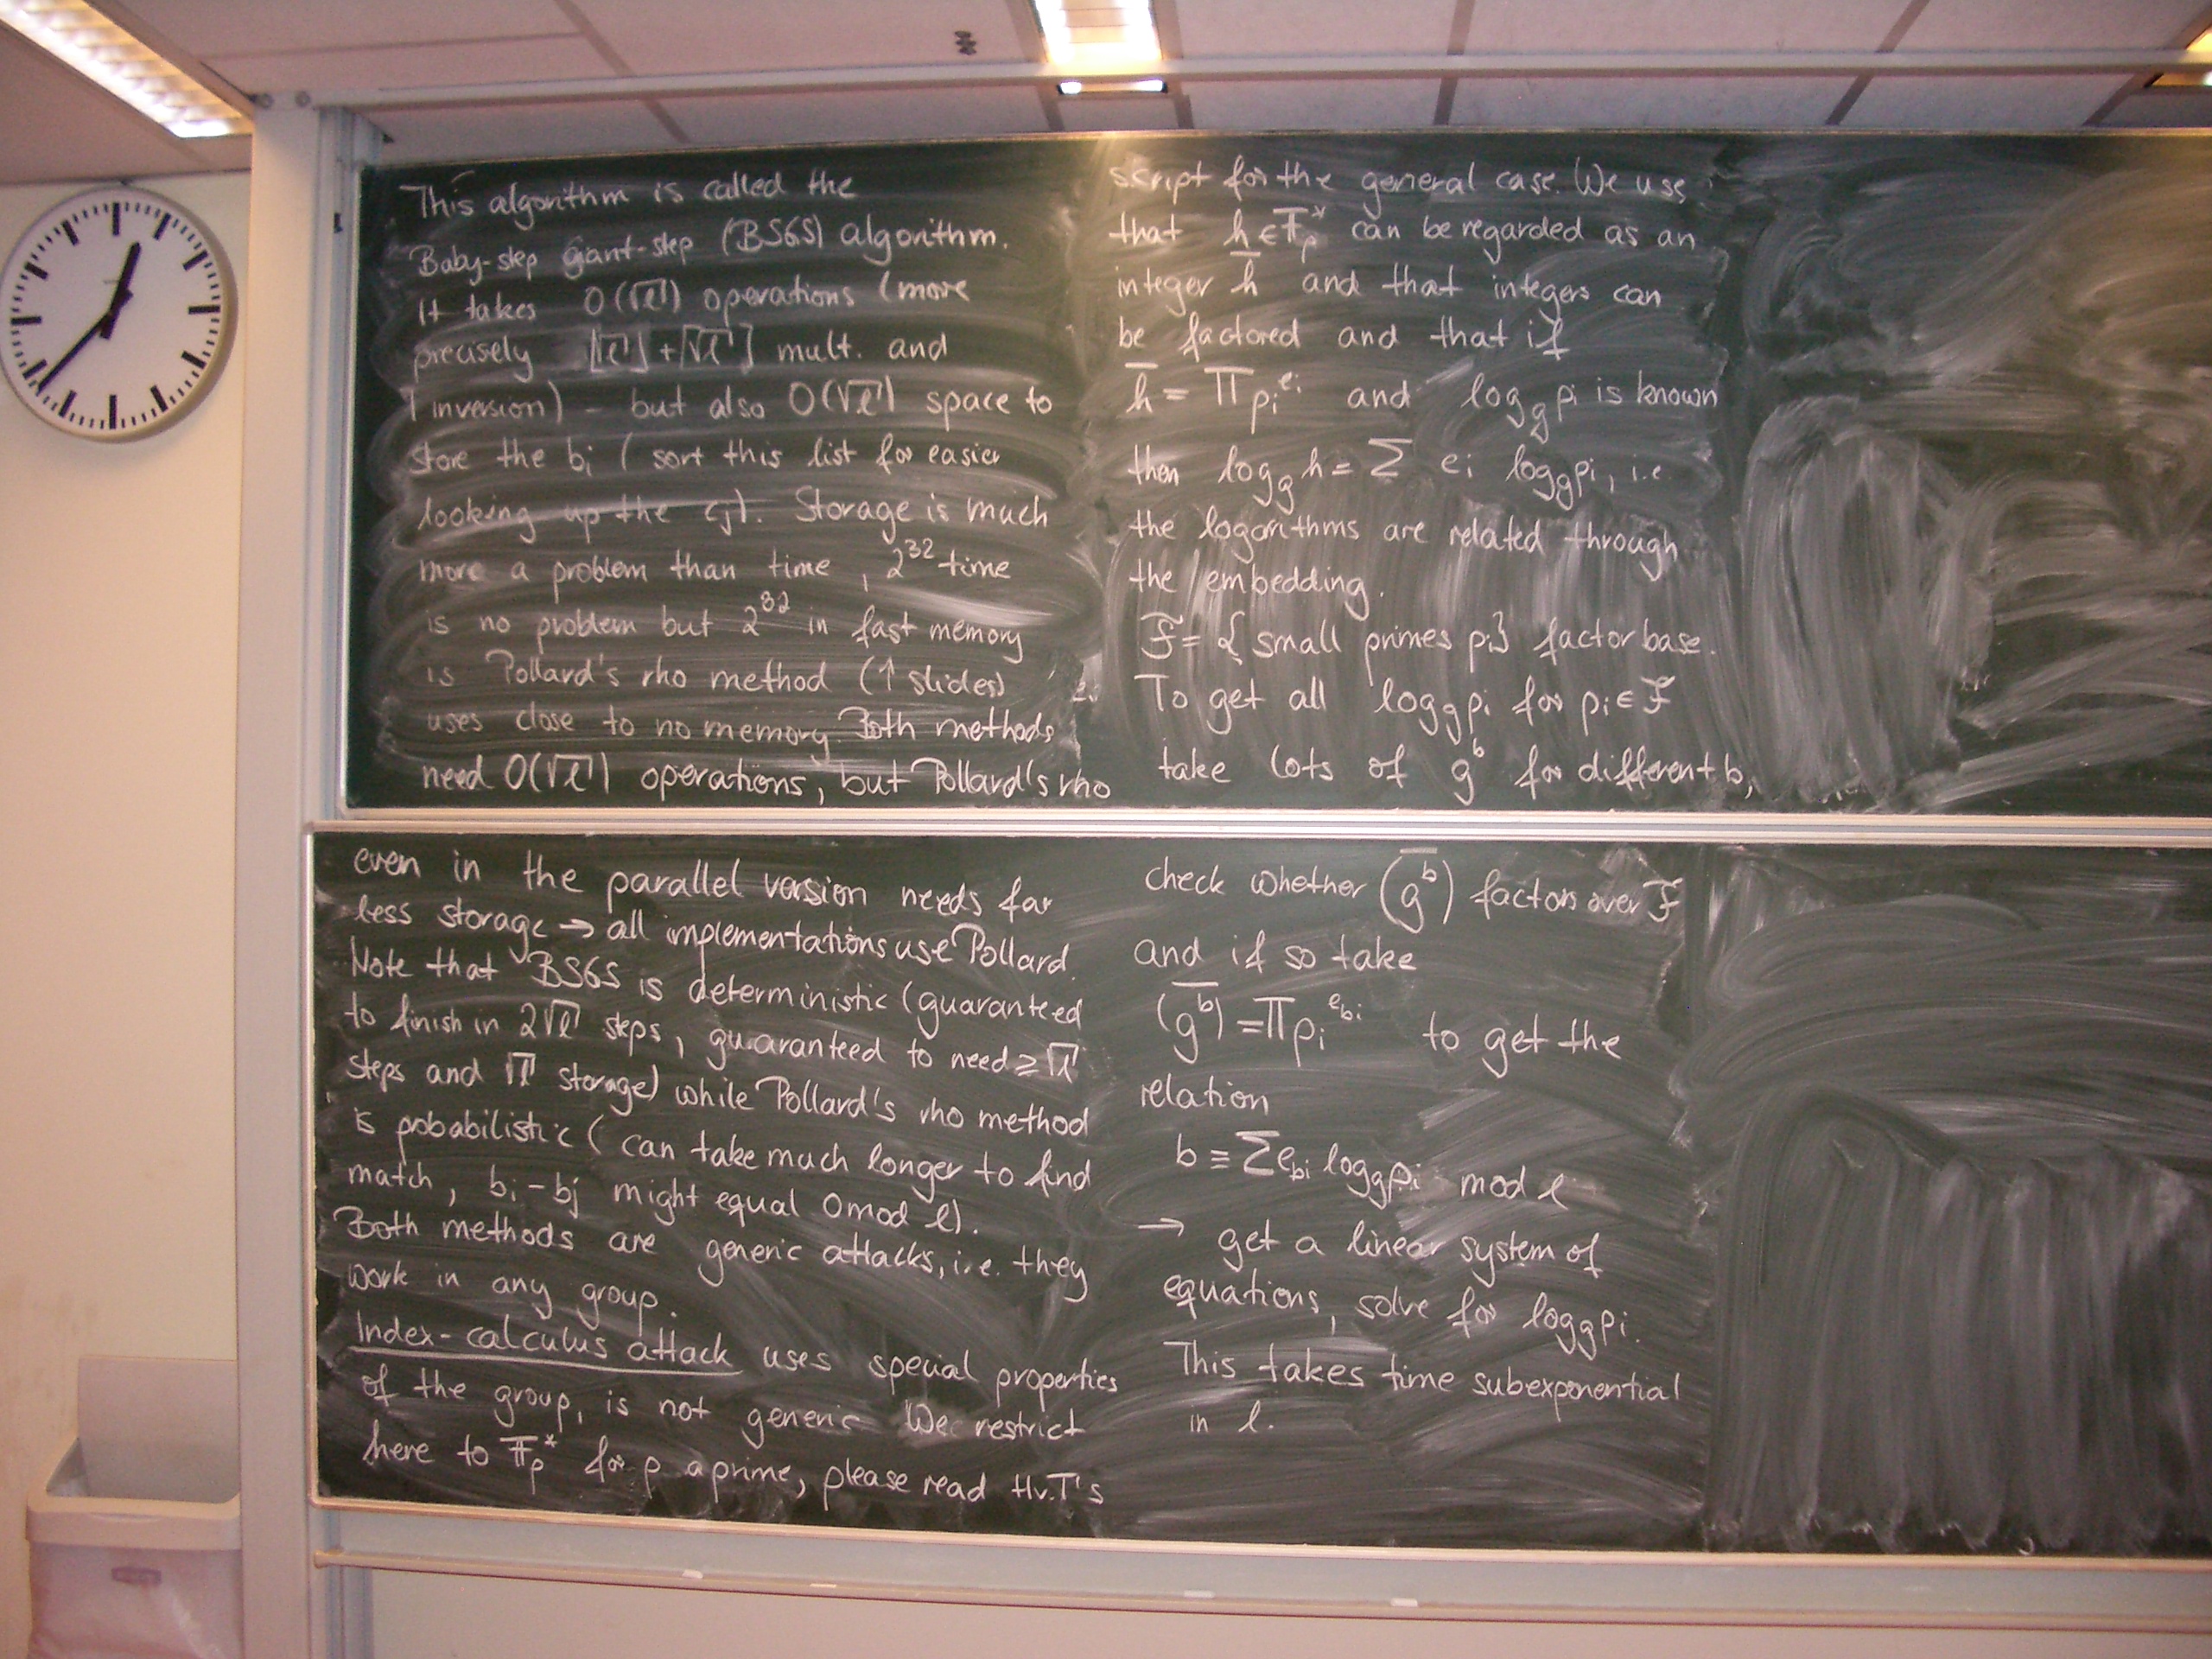 This algorithm is called the
Baby-step giant-step (BSGS) algorithm.
It takes O(√ℓ) operations (more
precisely ⌈√ℓ⌉+⌈√ℓ⌉ mult. and
1 inversion) - but also O(√ℓ) space to
store the bi (sort this list for easier
looking up the cj). Storage is much
more a problem than time, 2^32 time
is no problem but 2^32 in fast memory
is Pollard's rho method (↑ slides)
uses close to no memory. Both methods
need O(√ℓ) operations, but Pollard's rho
even in the parallel version needs far
less storage → all implementations use Pollard.
Note that BSGS is deterministic (guaranteed
to finish in 2√ℓ steps, guaranteed to need ≥ √ℓ
steps and √ℓ storage) while Pollard's rho method
is probabilistic (can take much longer to find
match, bi - bj might equal 0 mod ℓ).
Both methods are generic attacks, i.e. they
work in any group.
Index-calculus attack uses special properties
of the group, is not generic. We restrict
here to 𝔽p* for p a prime, please read HvT's
script for the general case. We use
that h ∈ 𝔽p* can be regarded as an
integer h̄ and that integers can
be factored and that if
h̄ = ∏ pi^ei and log_g pi is known
then log_g h = Σ ei log_g pi, i.e.
the logarithms are related through
the embedding.
ℱ = {small primes pi} factor base.
To get all log_g pi for pi ∈ ℱ
take lots of g^b for different b,
check whether (g^b)̄ factors over ℱ
and if so take
(g^b)̄ = ∏ pi^ebi to get the
relation
b ≡ Σ ebi log_g pi mod ℓ
→ get a linear system of
equations, solve for log_g pi.
This takes time subexponential
in ℓ.